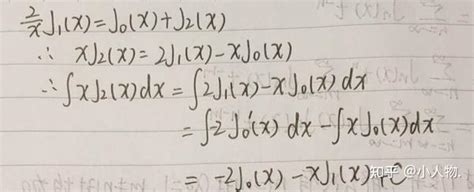 2/x J₁(x) = J₀(x) + J₂(x)
∴ xJ₂(x) = 2J₁(x) - xJ₀(x)
∴ ∫xJ₂(x)dx = ∫2J₁(x) - xJ₀(x) dx
= ∫2J₀'(x) dx - ∫xJ₀(x)dx
= -2J₀(x) - xJ₁(x) + C
知乎 @小人物.